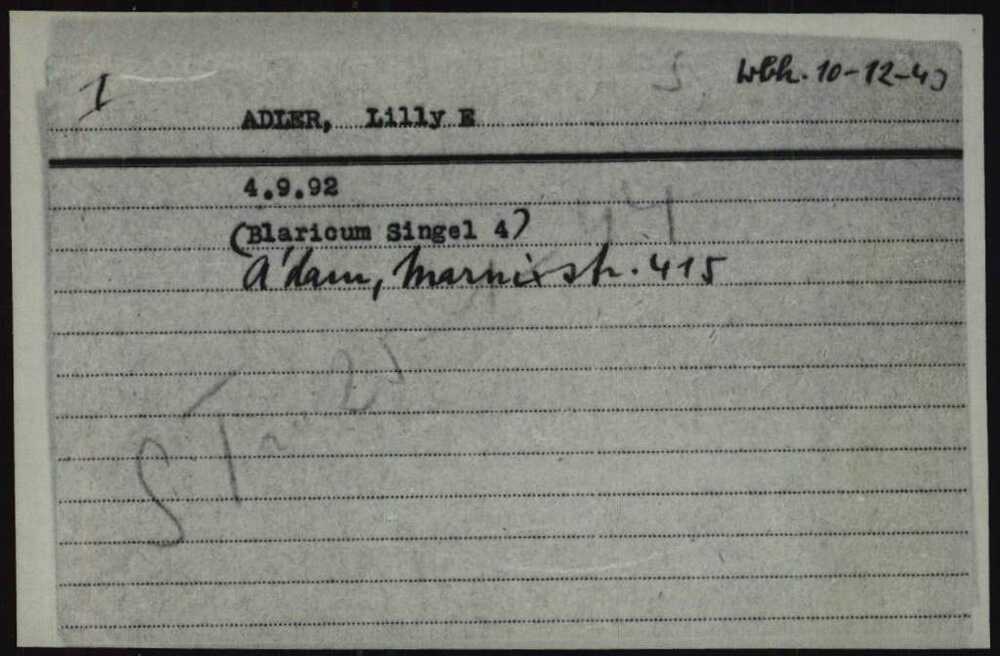 1 Wbk. 10-12-43
ADLER, Lilly E
4.9.92
(Blaricum Singel 4)
A'dam, Marnixstr. 415